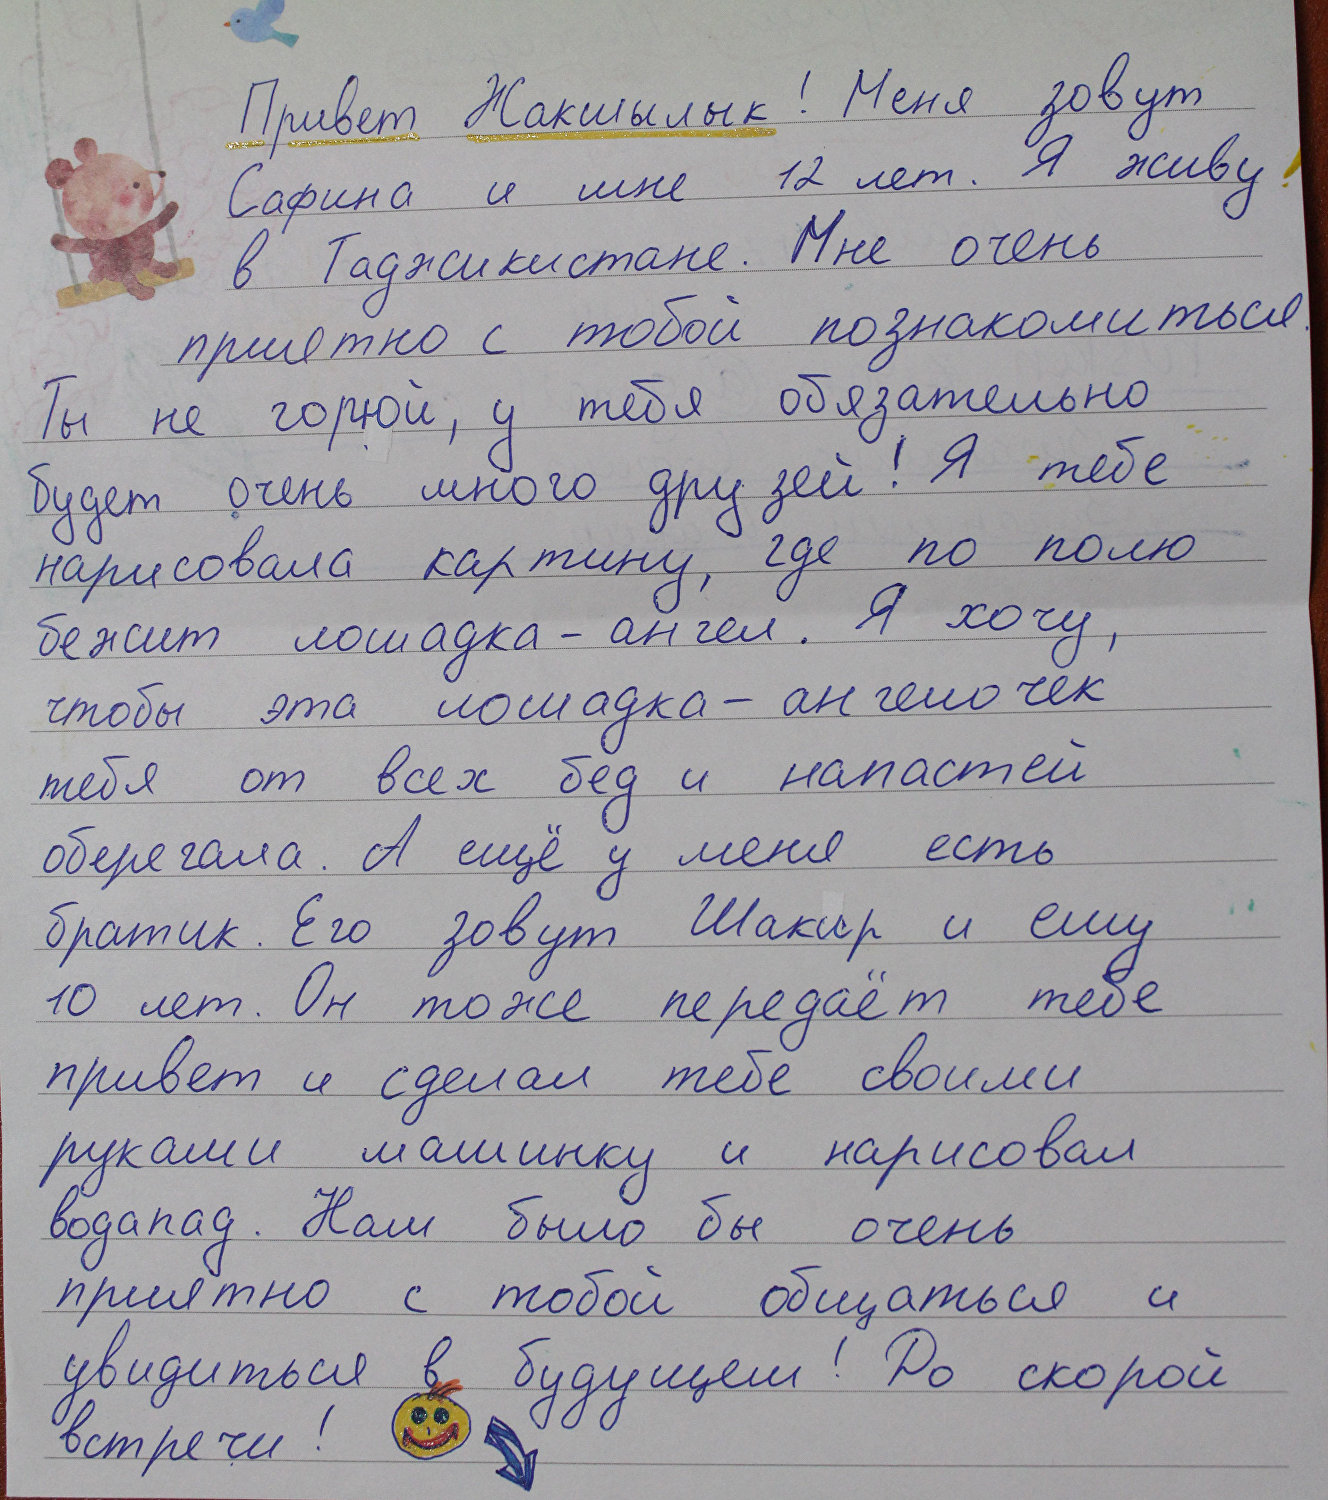 Привет Жакшылык! Меня зовут
Сафина и мне 12 лет. Я живу
в Таджикистане. Мне очень
приятно с тобой познакомиться.
Ты не горюй, у тебя обязательно
будет очень много друзей! Я тебе
нарисовала картину, где по полю
бежит лошадка-ангел. Я хочу,
чтобы эта лошадка-ангелочек
тебя от всех бед и напастей
оберегала. А ещё у меня есть
братик. Его зовут Шакир и ему
10 лет. Он тоже передаёт тебе
привет и сделал тебе своими
руками машинку и нарисовал
водапад. Нам было бы очень
приятно с тобой общаться и
увидиться в будущем! До скорой
встречи!